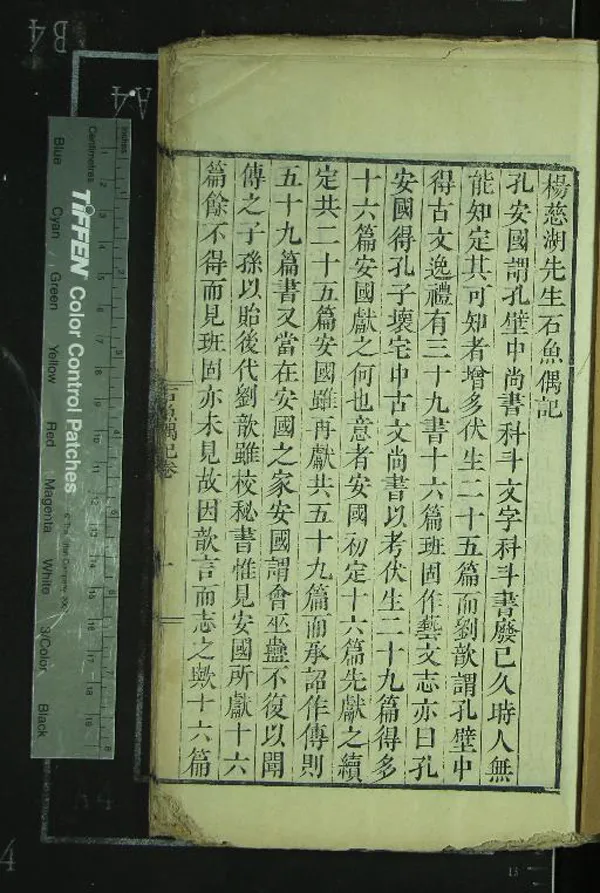 楊慈湖先生石魚偶記
孔安國謂孔壁中尚書科斗文字科斗書廢已久時人無
能知定其可知者增多伏生二十五篇而劉歆謂孔壁中
得古文逸禮有三十九書十六篇班固作藝文志亦曰孔
安國得孔子壞宅中古文尚書以考伏生二十九篇得多
十六篇安國獻之何也意者安國初定十六篇先獻之續
定共二十五篇安國雖再獻共五十九篇而承詔作傳則
五十九篇書又當在安國之家安國謂會巫蠱不復以聞
傳之子孫以貽後代劉歆雖校秘書惟見安國所獻十六
篇餘不得而見班固亦未見故因歆言而志之歟十六篇
石魚偶記卷
一
Inches
Centimetres
TIFFEN Color Control Patches
© The Tiffen Company, 200
Blue
Cyan
Green
Yellow
Red
Magenta
White
3/Color
Black
B4
A4
A4
4
13